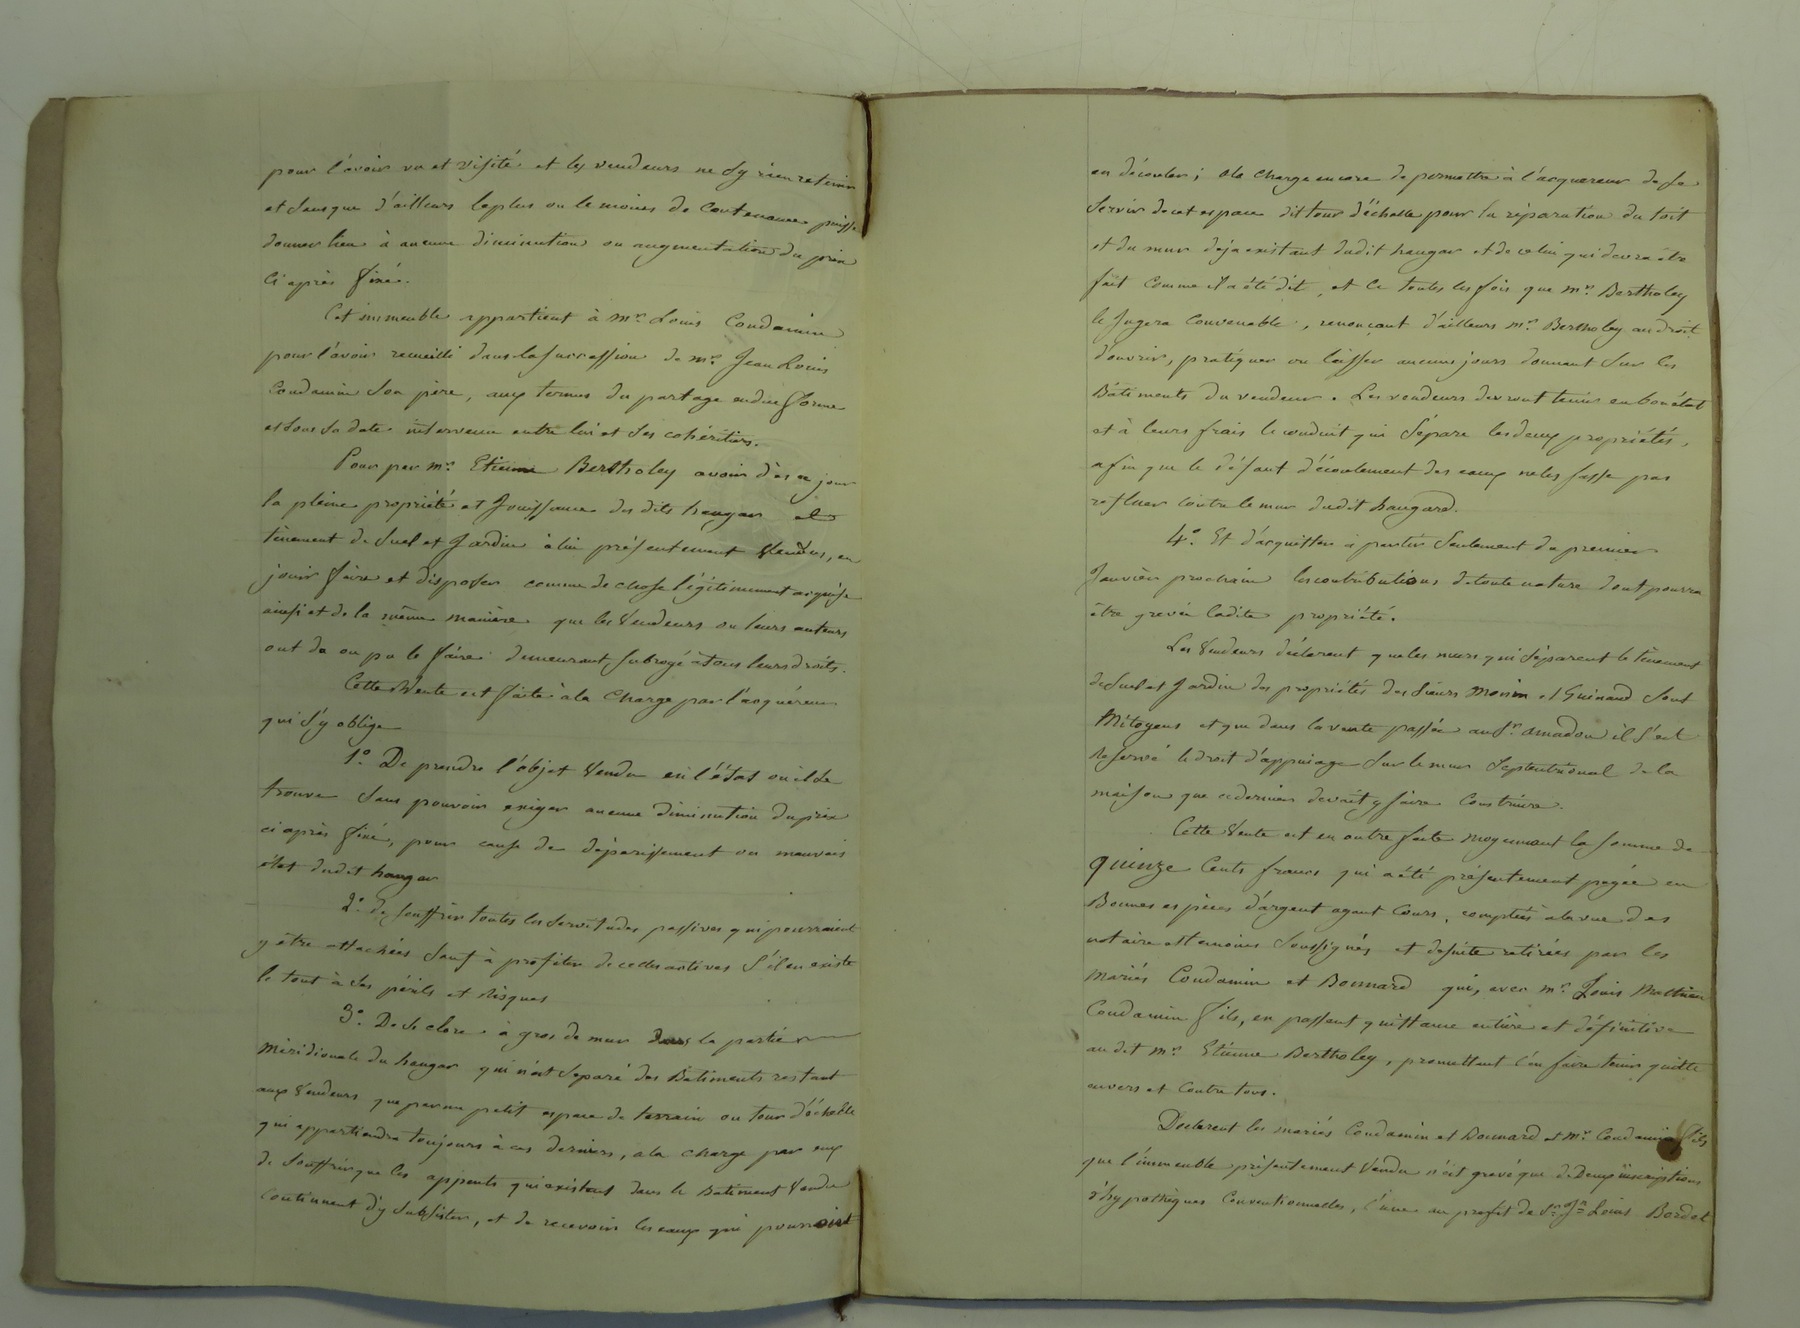 pour l'avoir vu et visité et les vendeurs ne s'y rien retenir
et sans que d'ailleurs le plus ou le moins de contenance puisse
donner lieu à aucune diminution ou augmentation du prix
ci après fixé.
Cet immeuble appartient à Mr. Louis Condamin
pour l'avoir recueilli dans la succession de Mr. Jean Louis
Condamin son père, aux termes du partage en due forme
et sous sa date intervenu entre lui et ses cohéritiers.
Pour par Mr. Etienne Bertholey avoir dès ce jour
la pleine propriété et jouissance des dits hangar et
tènement de suel et Jardin à lui présentement vendus, en
jouir faire et disposer comme de chose légitimement acquise
ainsi et de la même manière que les Vendeurs ou leurs auteurs
ont du ou pu le faire demeurant subrogé à tous leurs droits.
Cette Vente est faite à la charge par l'acquéreur
qui s'y oblige
1.° De prendre l'objet Vendu en l'état où il se
trouve sans pouvoir exiger aucune diminution du prix
ci après fixé, pour cause de dépérissement ou mauvais
état dudit hangar
2.° de souffrir toutes les servitudes passives qui pourraient
y être attachées sauf à profiter de celles actives s'il en existe
le tout à ses périls et risques
3.° De se clore à gros de mur dans la partie
Méridionale du hangar qui n'est séparé des Bâtiments restant
aux Vendeurs que par un petit espace de terrain ou tour d'échelle
qui appartiendra toujours à ces derniers, à la charge par eux
de souffrir que les appents qui existent dans le Batiment Vendu
continuent d'y subsister, et de recevoir les eaux qui pourroient
en découler; à la charge encore de permettre à l'acquereur de se
servir de cet espace dit tour d'échelle pour la réparation du toit
et du mur déja existant dudit hangar et de celui qui devra être
fait comme il a été dit, et ce toutes les fois que Mr. Bertholey
le jugera convenable, renonçant d'ailleurs Mr. Bertholey au droit
d'ouvrir, pratiquer ou laisser aucuns jours donnant sur les
Bâtiments du vendeur. Les vendeurs devront tenir en bon état
et à leurs frais le conduit qui sépare les deux propriétés,
afin que le défaut d'écoulement des eaux ne les fasse pas
refluer contre le mur dudit hangard.
4.° Et d'acquitter à partir seulement du premier
Janvier prochain les contributions de toute nature dont pourra
être grevée ladite propriété.
Les Vendeurs déclarent que les murs qui séparent le tènement
de Suel et Jardin des propriétés des sieurs Monin et Guinand sont
Mitoyens et que dans la vente passée au Sr. Amadou il s'est
réservé le droit d'appuiage sur le mur septentrional de la
maison que ce dernier devait y faire construire.
Cette Vente est en outre faite moyennant la somme de
quinze Cents francs qui a été présentement payée en
Bonnes espèces d'argent ayant cours, comptées à la vue des
notaire et temoins soussignés et desuite retirées par les
mariés Condamin et Bonnard qui, avec Mr. Louis Mathieu
Condamin fils, en passent quittance entière et définitive
audit Mr. Etienne Bertholey, promettant l'en faire tenir quitte
envers et contre tous.
Déclarent les mariés Condamin et Bonnard et Mr. Condamin fils
que l'immeuble présentement Vendu n'est grevé que de Deux inscriptions
d'hypothèques Conventionnelles, l'une au profit de Sr. Jn. Louis Bordet